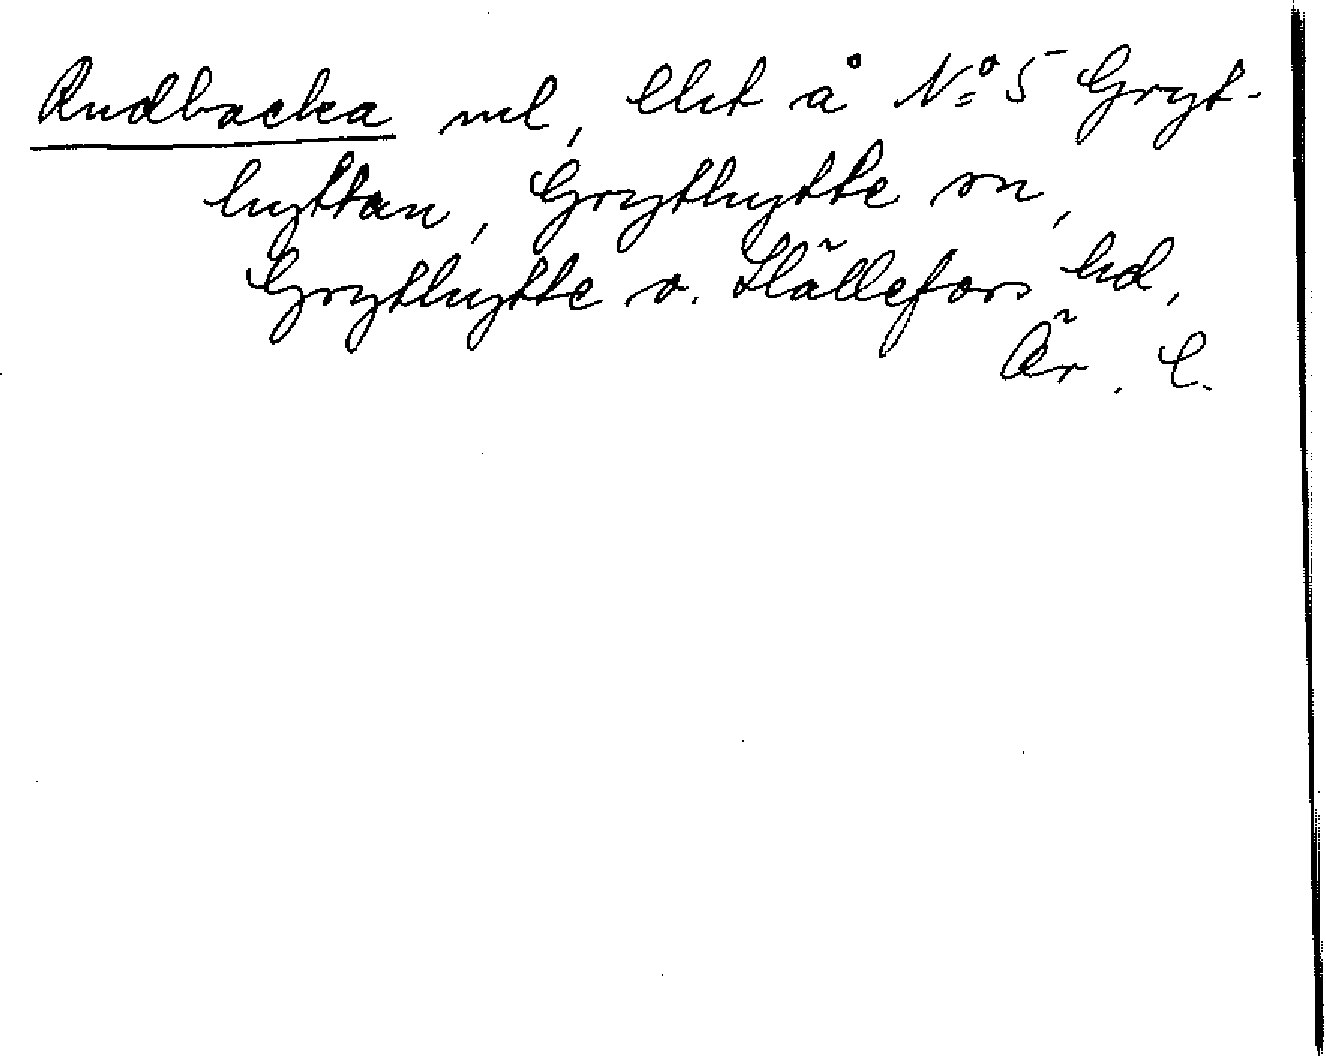 Rudbacka ml, Elit å No 5 Gryt-
hyttan, Grythytte sn,
Grythytte o. Hällefors hd,
Är. l.